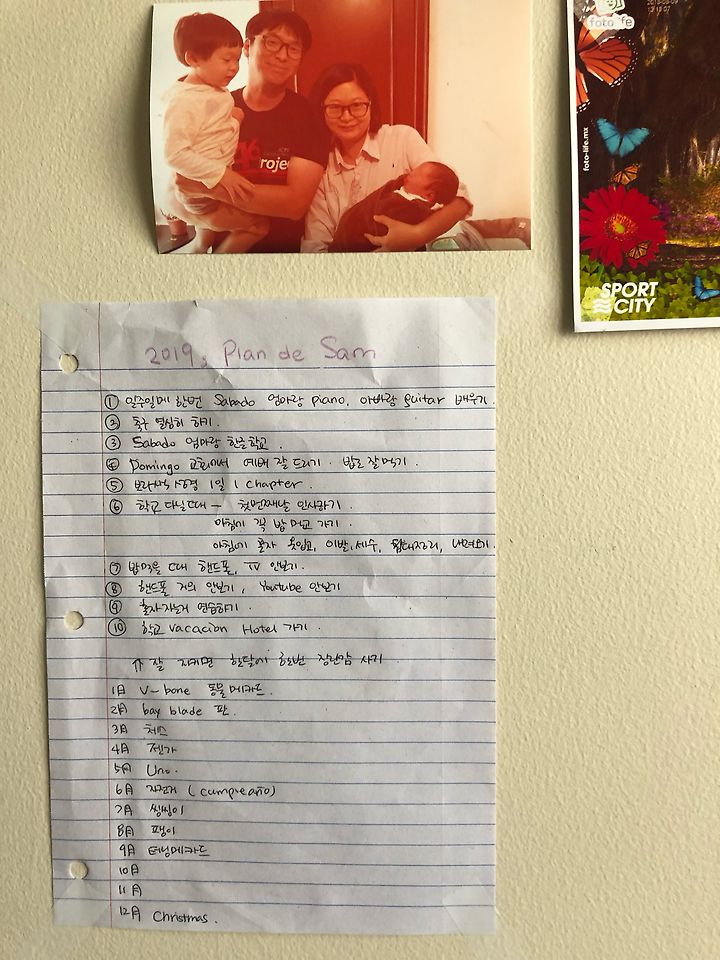 roje
foto life
2018-08-09
foto-life.mx
SPORT
CITY
2019, Plan de Sam
① 일주일에 한번 Sabado 엄마랑 piano, 아빠랑 guitar 배우기.
② 축구 열심히 하기.
③ Sabado 엄마랑 한글학교.
④ Domingo 교회에서 예배 잘 드리기. 밥도 잘 먹기.
⑤ 1일 1 chapter.
⑥ 학교 다닐때 - 첫번째날 인사하기.
아침에 꼭 밥 먹고 가기.
아침에 혼자 옷입고, 이발, 세수,
⑦ 밥먹을 때 핸드폰, TV 안보기.
⑧ 핸드폰 거의 안보기, Youtube 안보기
⑨ 혼자 자전거 연습하기.
⑩ 학교 vacacion Hotel 가기.
⇑ 잘 지키면 한달에 한번 장난감 사기
1月 V-bone 동물메카드.
2月 bay blade 판.
3月 체스
4月 젠가
5月 Uno.
6月 자전거 (cumpleaño)
7月 씽씽이
8月 팽이
9月 터닝메카드
10月
11月
12月 Christmas.